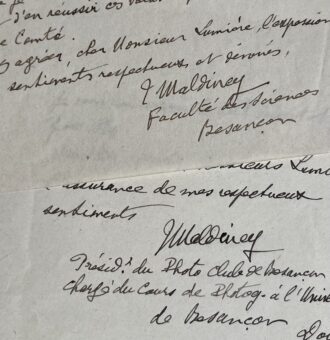 J'en réussir ces
le Comté.
agréer, cher Monsieur Lumière, l'expression
sentiments respectueux et dévoués,
J Maldiney
Faculté des Sciences
Besançon
Lumi
l'assurance de mes respectueux
sentiments
J Maldiney
Présidt du Photo Club de Besançon
chargé du Cours de Photog. à l'Unive
de Besançon
Dou